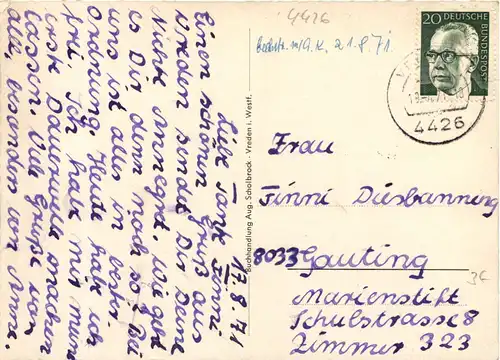 4426
Beantw. m/A.K. 21.8.71.
20 DEUTSCHE
BUNDESPOST
4426
17.8.71
Liebe Tante Finni
Einen schönen Gruß aus
Vreden sendet Dir Deine
Nichte Annegret. Wie geht
es Dir denn noch so? Bei
uns ist alles in bester
Ordnung. Heute habe ich
frei. Ich habe mir meine
erste Dauerwelle machen
lassen. Viele Grüße von
alle, besonders von Anne.
Buchhandlung Aug. Scholbrock - Vreden i. Westf.
Frau
Finni Diesbanning
8033 Gauting
Marienstift
Schulstrasse 8
Zimmer 323